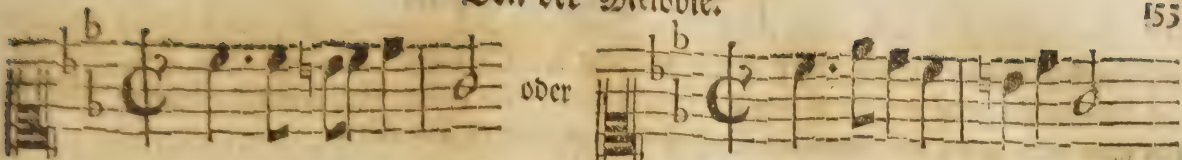 Von der Melodie.
155
oder